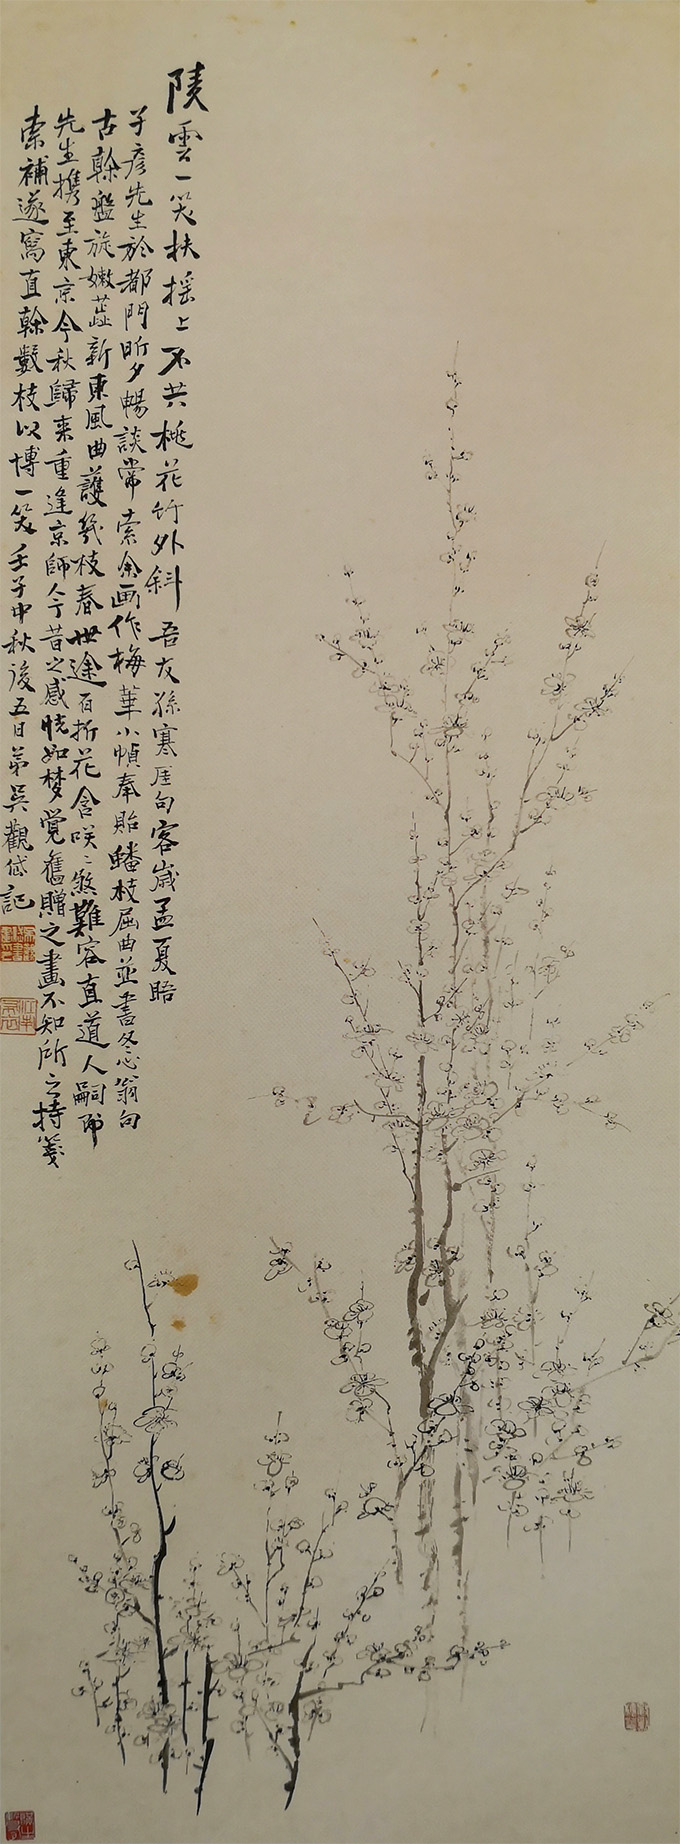 陵雲一笑扶搖上不共桃花竹外斜吾友孫寒厓句客歲孟夏晤
子彥先生於都門昕夕暢談常索余画作梅華小幀奉貽蟠枝屈曲並書冬心翁句
古榦盤旋嫩蕊新東風曲護幾枝春世途百折花含咲咲煞難容直道人嗣即
先生携至東京今秋歸来重逢京師今昔之感恍如梦覺舊贈之畫不知所之持箋
索補遂寫直榦數枝以博一笑壬子中秋後五日弟吳觀岱記